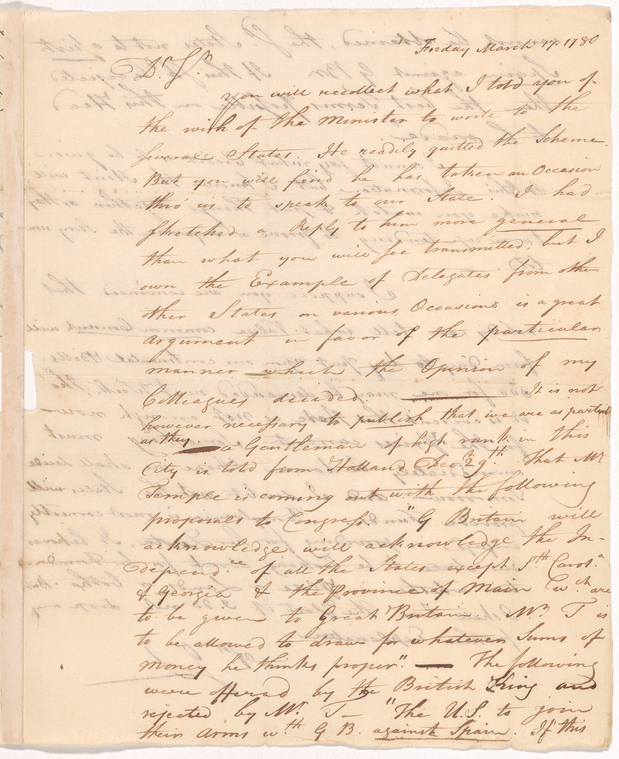 Friday March 17. 1780
Dr. Sir
you will recollect what I told you of
the wish of the Minister to write to the
several States. He readily quitted the Scheme.
But you will find he has taken an Occasion
thro' us to speak to our State. I had
sketched a Reply to him more general
than what you will see transmitted; but I
own the Example of Delegates from other
ther States on various Occasions is a great
argument in favor of the particular
manner which the Opinion of my
Colleagues decided. It is not
however necessary to publish that we are as partial
as they. — a Gentleman of high rank in this
City is told from Holland Decr. 29th. That Mr
Temple is coming out with the following
proposals to Congress "G Britain will
acknowledge will acknowledge the In-
depend.ce of all the States except Sth Carola.
& Georgia & the Province of Main wch. are
to be given to Great Britain Mr. T is
to be allowed to draw for whatever Sums of
money he thinks proper". — The following
were offered by the British King and
rejected by Mr. T — "The U.S. to join
their Arms wth G B. against Spain. If this